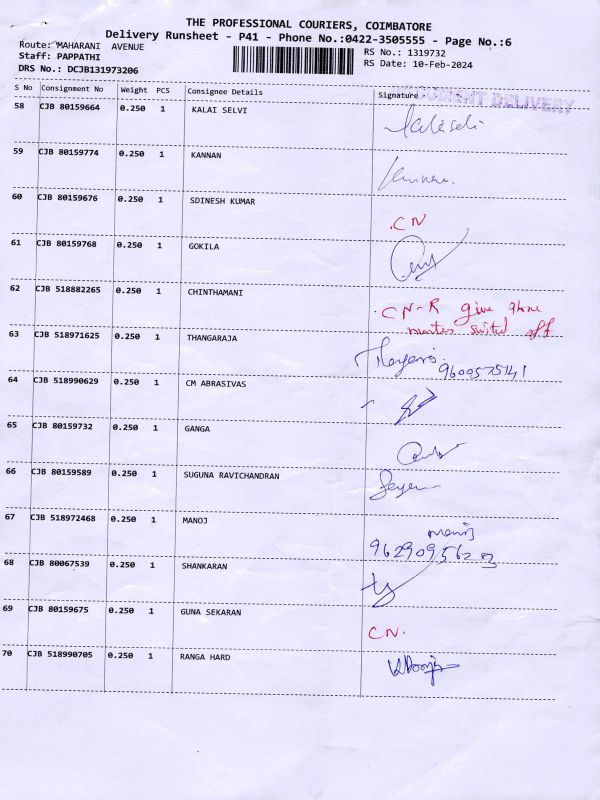 THE PROFESSIONAL COURIERS, COIMBATORE
Delivery Runsheet - P41 - Phone No.:0422-3505555 - Page No.:6
Route: MAHARANI AVENUE
Staff: PAPPATHI
DRS No.: DCJB131973206
RS No.: 1319732
RS Date: 10-Feb-2024
S No Consignment No Weight PCS Consignee Details Signature
DOCUMENT DELIVERY
58 CJB 80159664 0.250 1 KALAI SELVI Kalaiselvi
59 CJB 80159774 0.250 1 KANNAN
60 CJB 80159676 0.250 1 SDINESH KUMAR CN
61 CJB 80159768 0.250 1 GOKILA
62 CJB 518882265 0.250 1 CHINTHAMANI CN-R give phone
off
63 CJB 518971625 0.250 1 THANGARAJA
9600575141
64 CJB 518990629 0.250 1 CM ABRASIVAS
65 CJB 80159732 0.250 1 GANGA
66 CJB 80159589 0.250 1 SUGUNA RAVICHANDRAN
67 CJB 518972468 0.250 1 MANOJ manoj
68 CJB 80067539 0.250 1 SHANKARAN
69 CJB 80159675 0.250 1 GUNA SEKARAN CN.
70 CJB 518990705 0.250 1 RANGA HARD